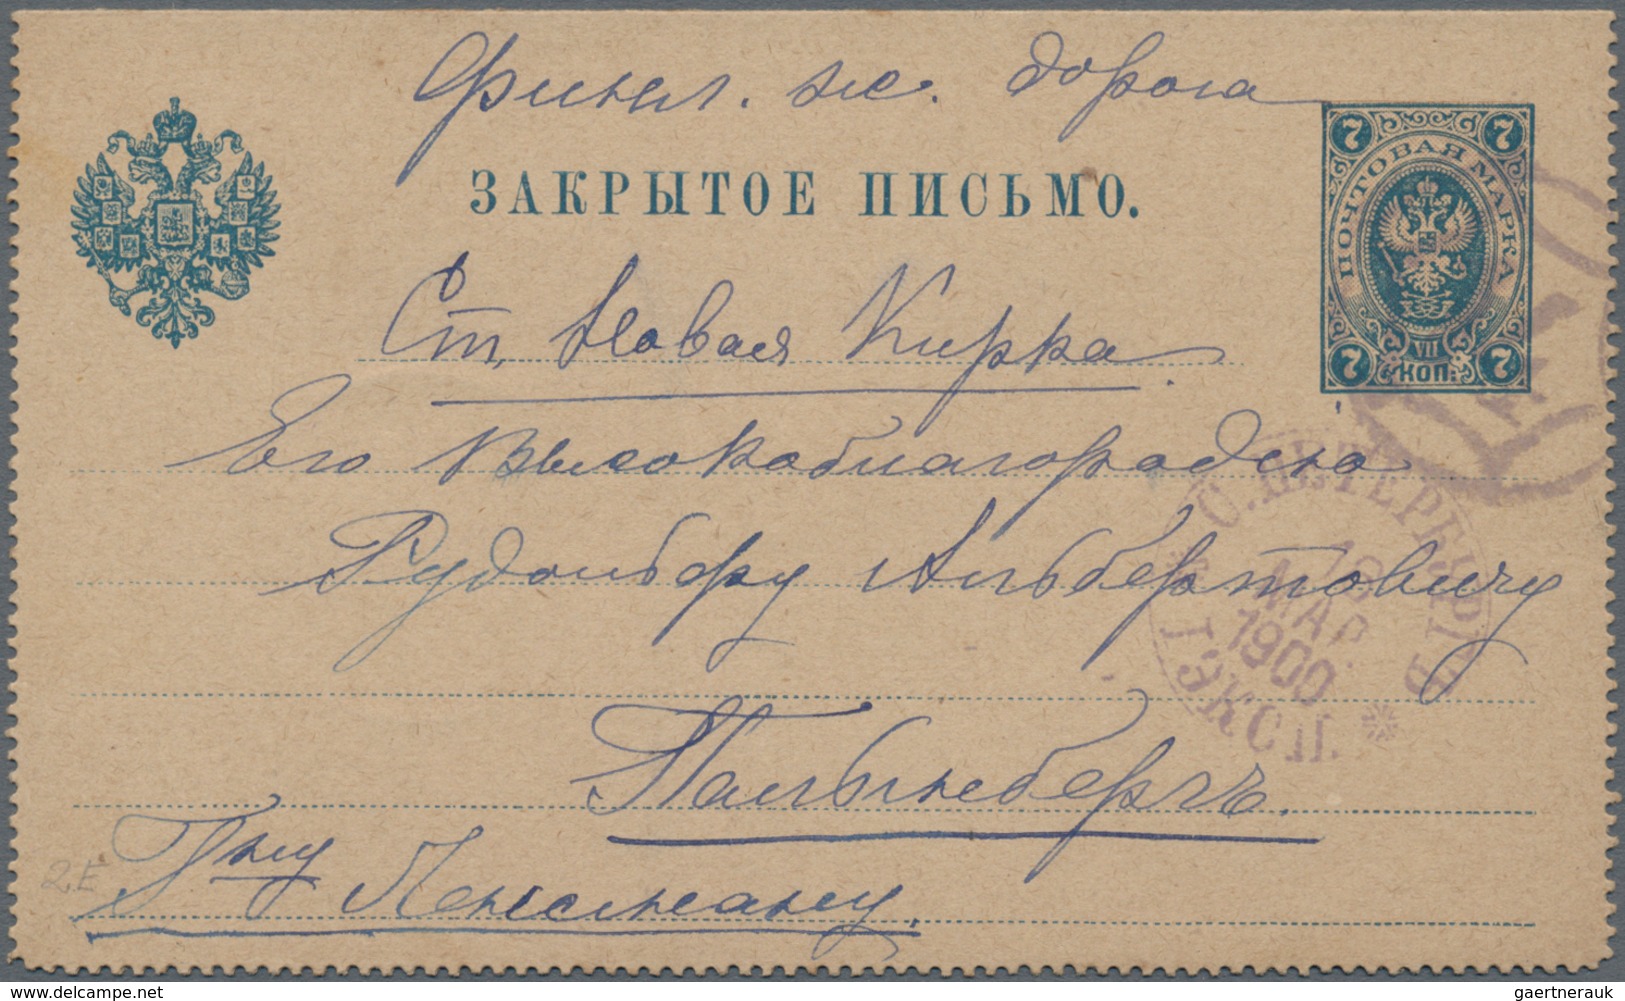 Финл. ж. дорога
ЗАКРЫТОЕ ПИСЬМО.
7 7
ПОЧТОВАЯ МАРКА
VII
7 КОП. 7
Ст. Новая Кирка.
Его Высокоблагородию
Рудольфу Альбертовичу
С.ПЕТЕРБУРГЪ
МАР
1900
I ЭКСП.
Пальмбергъ.
Гну
2.E
delcampe.net
gaertnerauk